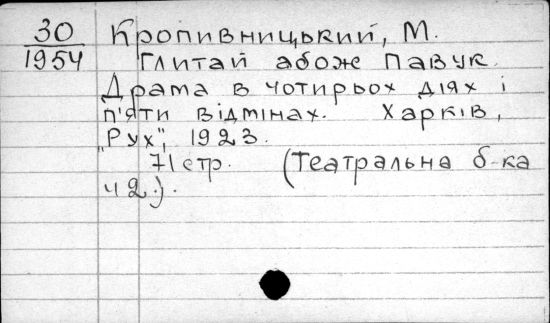 30 Кропивницький, М.
1954 Глитай абоже Павук.
Драма в чотирьох діях і
п'яти відмінах. Харків,
„Рух", 1923.
71 стр. (Театральна б-ка
ч 2.).